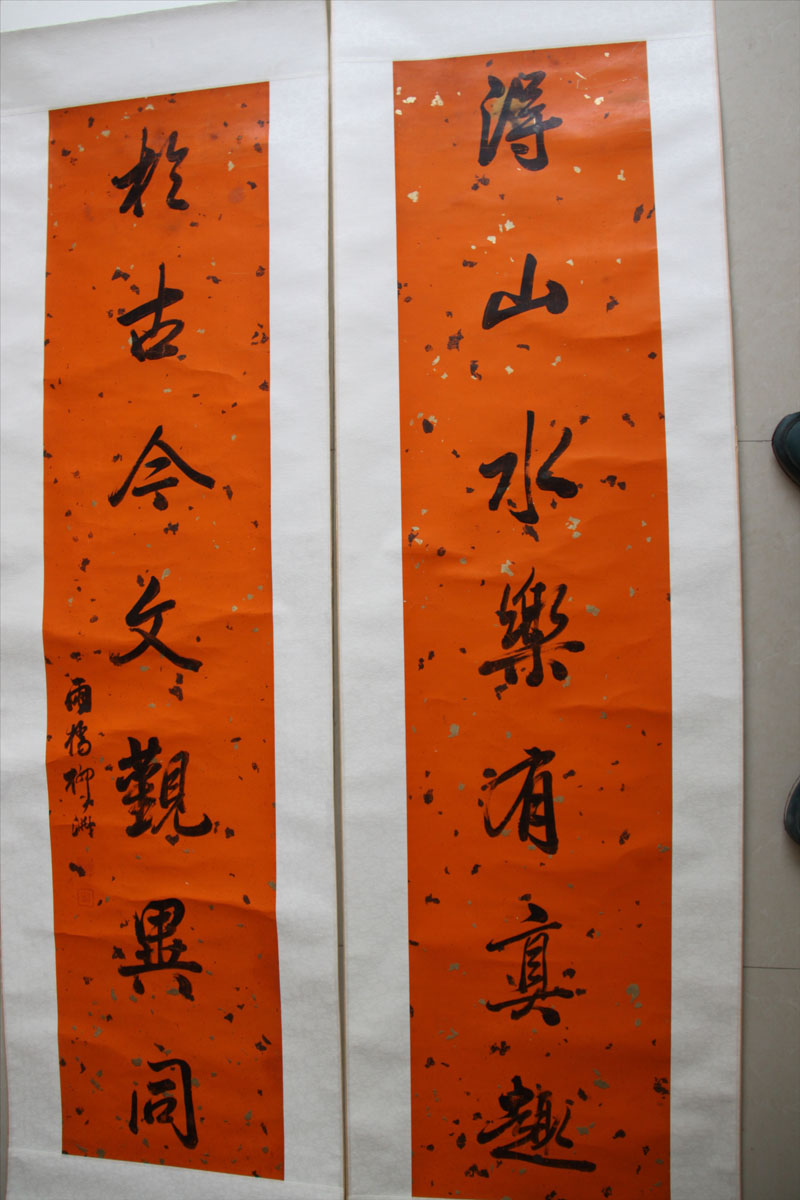 得山水樂有真趣
於古今文觀異同
雨橋柳